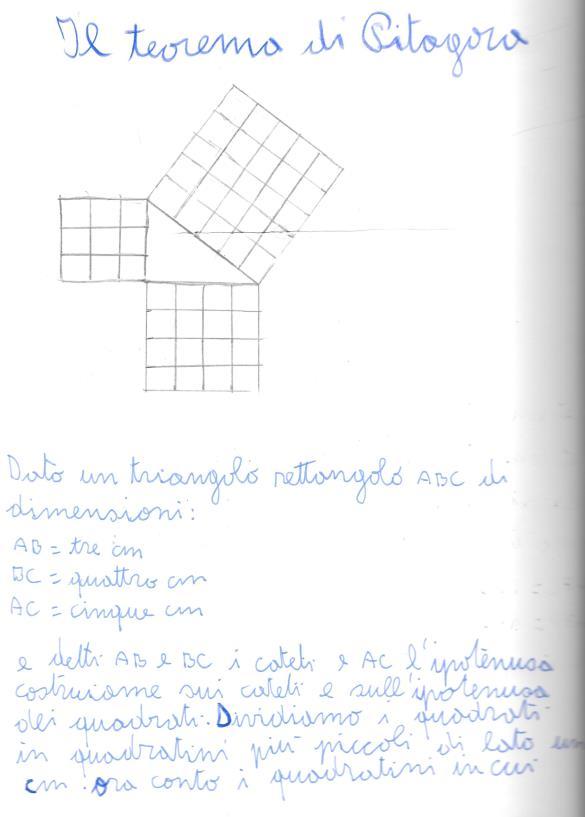 Il teorema di Pitagora
Dato un triangolo rettangolo ABC di
dimensioni:
AB = tre cm
BC = quattro cm
AC = cinque cm
e detti AB e BC i cateti e AC l'ipotenusa
costruiamo sui cateti e sull'ipotenusa
dei quadrati. Dividiamo i quadrati
in quadratini più piccoli di lato un
cm. ora conto i quadratini in cui